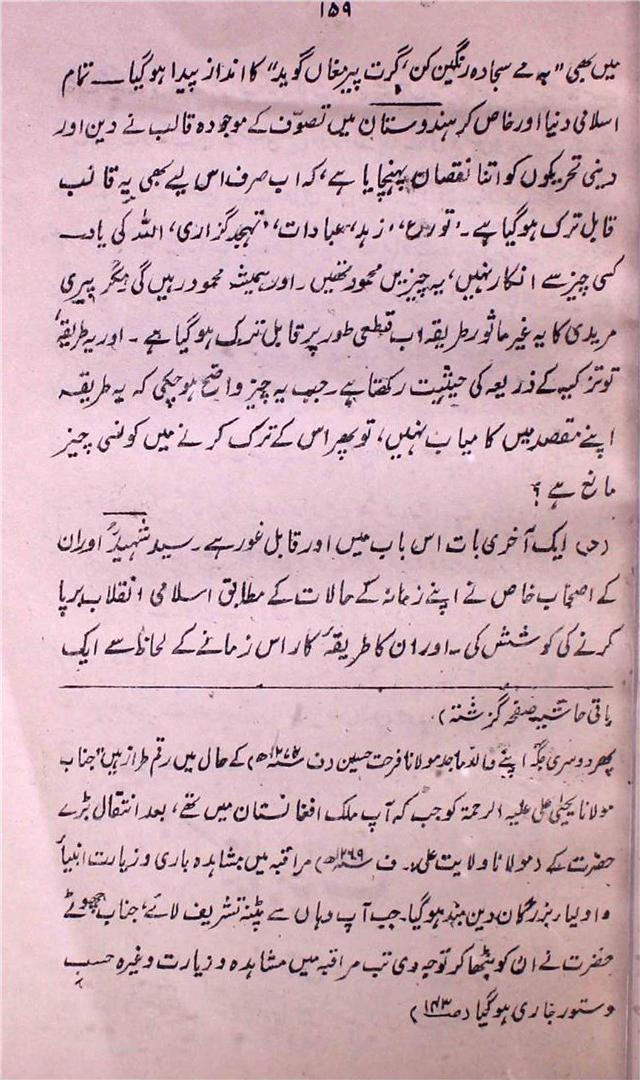 ۱۵۹
میں بھی "بہ مے سجادہ رنگین کن، گرت پیر مغاں گوید" کا انداز پیدا ہوگیا ــــ تمام
اسلامی دنیا اور خاص کر ہندوستان میں تصوّف کے موجودہ قالب نے دین اور
دینی تحریکوں کو اتنا نقصان پہنچایا ہے، کہ اب صرف اس لیے بھی یہ قالب
قابل ترک ہوگیا ہے۔ تورع، زہد، عبادات، تہجد گزاری، اللہ کی یاد۔
کسی چیز سے انکار نہیں، یہ چیزیں محمود تھیں۔ اور ہمیشہ محمود رہیں گی مگر پیری
مریدی کا یہ غیر ماثور طریقہ اب قطعی طور پر قابل ترک ہوگیا ہے۔ اور یہ طریقہ
تو تزکیہ کے ذریعہ کی حیثیت رکھتا ہے۔ جب یہ چیز واضح ہوچکی کہ یہ طریقہ
اپنے مقصد میں کامیاب نہیں، تو پھر اس کے ترک کرنے میں کونسی چیز
مانع ہے؟
ایک آخری بات اس باب میں اور قابل غور ہے۔ سید شہیدؒ اور ان
کے اصحاب خاص نے اپنے زمانہ کے حالات کے مطابق اسلامی انقلاب برپا
کرنے کی کوشش کی۔ اور ان کا طریقۂ کار اس زمانے کے لحاظ سے ایک
باقی حاشیہ صفحہ گزشتہ)
پھر دوسری جگہ اپنے والد ماجد مولانا فرحت حسین (ف ۱۲۷۴ھ) کے حال میں رقم طراز ہیں "جناب
مولانا یحییٰ علی علیہ الرحمۃ کو جب کہ آپ ملک افغانستان میں تھے، بعد انتقال بڑے
حضرت کے (مولانا ولایت علی۔ ف ۱۲۶۹ھ) مراقبہ میں مشاہدہ باری و زیارت انبیأ
و اولیار بزرگان دین بند ہوگیا۔ جب آپ وہاں سے پٹنہ تشریف لائے، جناب چھوٹے
حضرت نے ان کو بٹھا کر توجہ دی تب مراقبہ میں مشاہدہ و زیارت وغیرہ حسب
دستور جاری ہوگیا (صـ ۱۴۳)